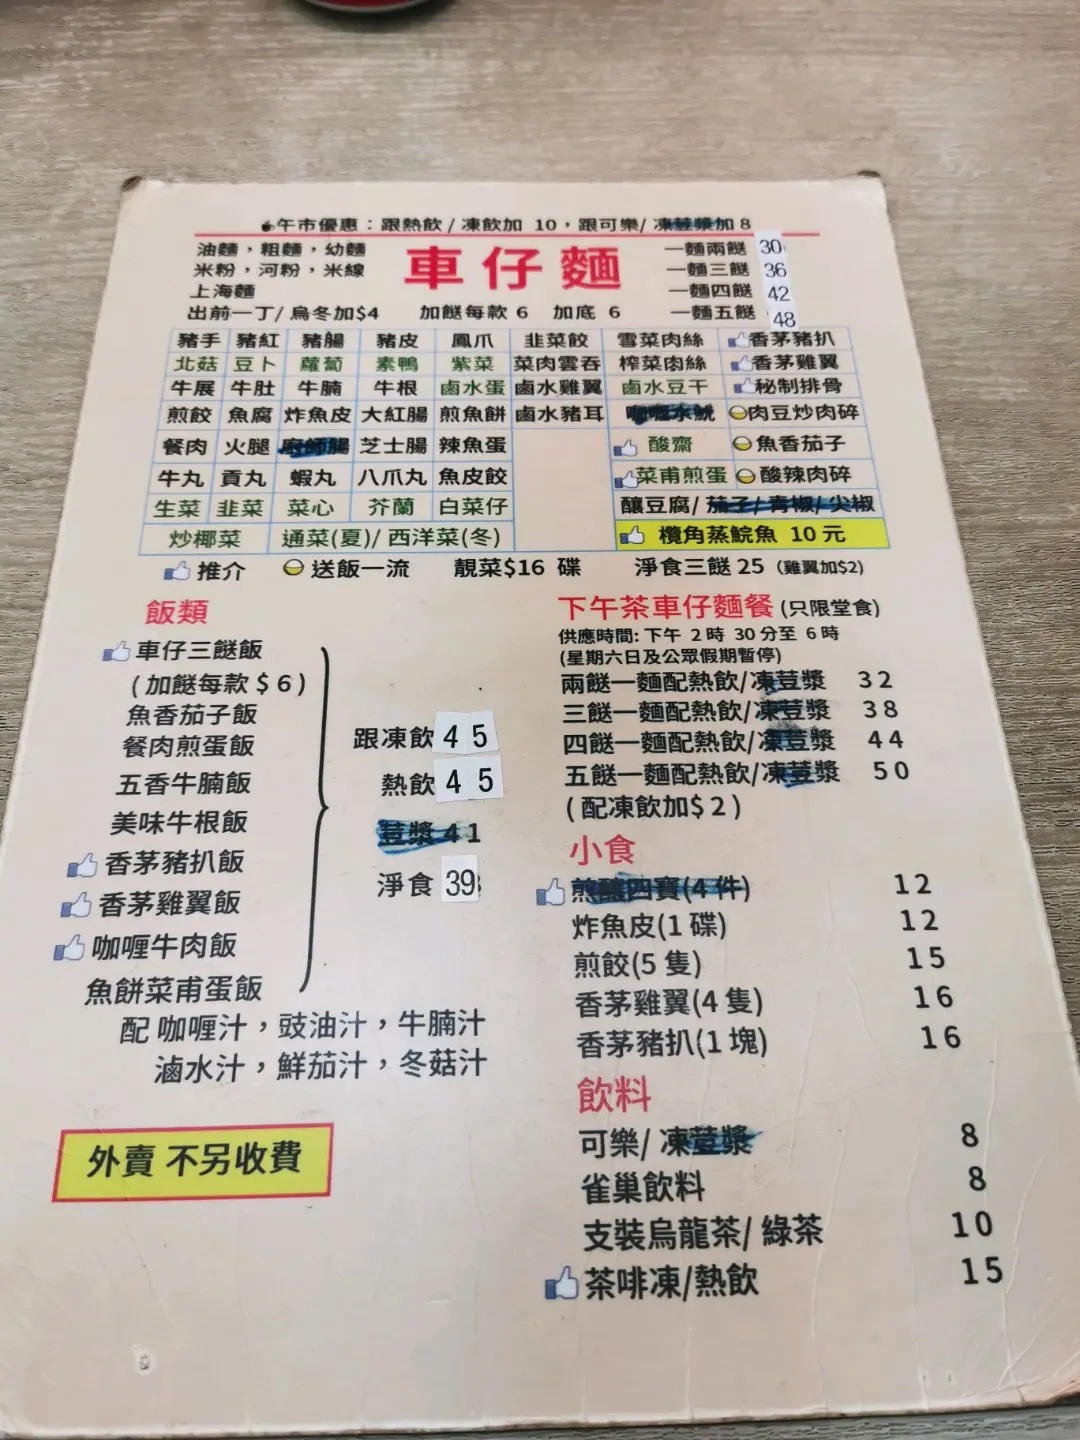 午市優惠：跟熱飲 / 凍飲加 10，跟可樂/ 凍荳漿加 8
油麵，粗麵，幼麵
米粉，河粉，米線
上海麵
出前一丁/ 烏冬加$4
車仔麵
加餸每款 6 加底 6
一麵兩餸 30
一麵三餸 36
一麵四餸 42
一麵五餸 48
豬手 豬紅 豬腸 豬皮 鳳爪 韭菜餃 雪菜肉絲 香茅豬扒
北菇 豆卜 蘿蔔 素鴨 紫菜 菜肉雲吞 榨菜肉絲 香茅雞翼
牛展 牛肚 牛腩 牛根 鹵水蛋 鹵水雞翼 鹵水豆干 秘制排骨
煎餃 魚腐 炸魚皮 大紅腸 煎魚餅 鹵水豬耳 咖喱水魷 肉豆炒肉碎
餐肉 火腿 廚師腸 芝士腸 辣魚蛋 酸齋 魚香茄子
牛丸 貢丸 蝦丸 八爪丸 魚皮餃 菜甫煎蛋 酸辣肉碎
生菜 韭菜 菜心 芥蘭 白菜仔 釀豆腐/ 茄子/ 青椒/ 尖椒
炒椰菜 通菜(夏)/ 西洋菜(冬) 欖角蒸鯇魚 10 元
推介 送飯一流 靚菜$16 碟 淨食三餸 25 (雞翼加$2)
飯類
車仔三餸飯
(加餸每款 $ 6 )
魚香茄子飯
餐肉煎蛋飯
五香牛腩飯
美味牛根飯
香茅豬扒飯
香茅雞翼飯
咖喱牛肉飯
魚餅菜甫蛋飯
跟凍飲 4 5
熱飲 4 5
荳漿 4 1
淨食 39
配 咖喱汁，豉油汁，牛腩汁
滷水汁，鮮茄汁，冬菇汁
外賣 不另收費
下午茶車仔麵餐 (只限堂食)
供應時間: 下午 2 時 30 分至 6 時
(星期六日及公眾假期暫停)
兩餸一麵配熱飲/凍荳漿 3 2
三餸一麵配熱飲/凍荳漿 3 8
四餸一麵配熱飲/凍荳漿 4 4
五餸一麵配熱飲/凍荳漿 5 0
( 配凍飲加$ 2 )
小食
煎釀四寶(4 件) 1 2
炸魚皮(1 碟) 1 2
煎餃(5 隻) 1 5
香茅雞翼(4 隻) 1 6
香茅豬扒(1 塊) 1 6
飲料
可樂/ 凍荳漿 8
雀巢飲料 8
支裝烏龍茶/ 綠茶 1 0
茶啡凍/熱飲 1 5